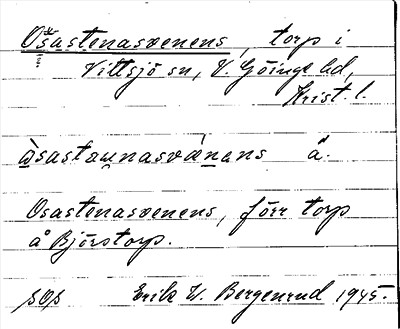 Osastenasvenens, torp i
Vittsjö sn, V. Göinge hd,
Krist. l.
òsastænasvǽnans ä.
Osastenasvenens, förr torp
å Björstorp.
sop Erik W. Bergenrud 1945.